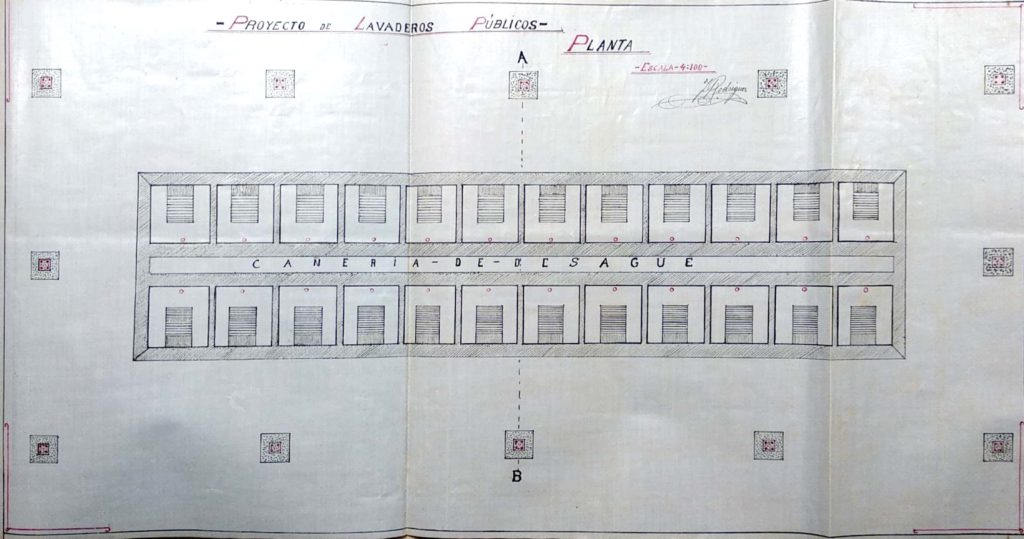 - PROYECTO DE LAVADEROS PÚBLICOS -
PLANTA
- ESCALA - 1:100 -
Rodriguez
A
CAÑERIA - DE - DESAGUE
B